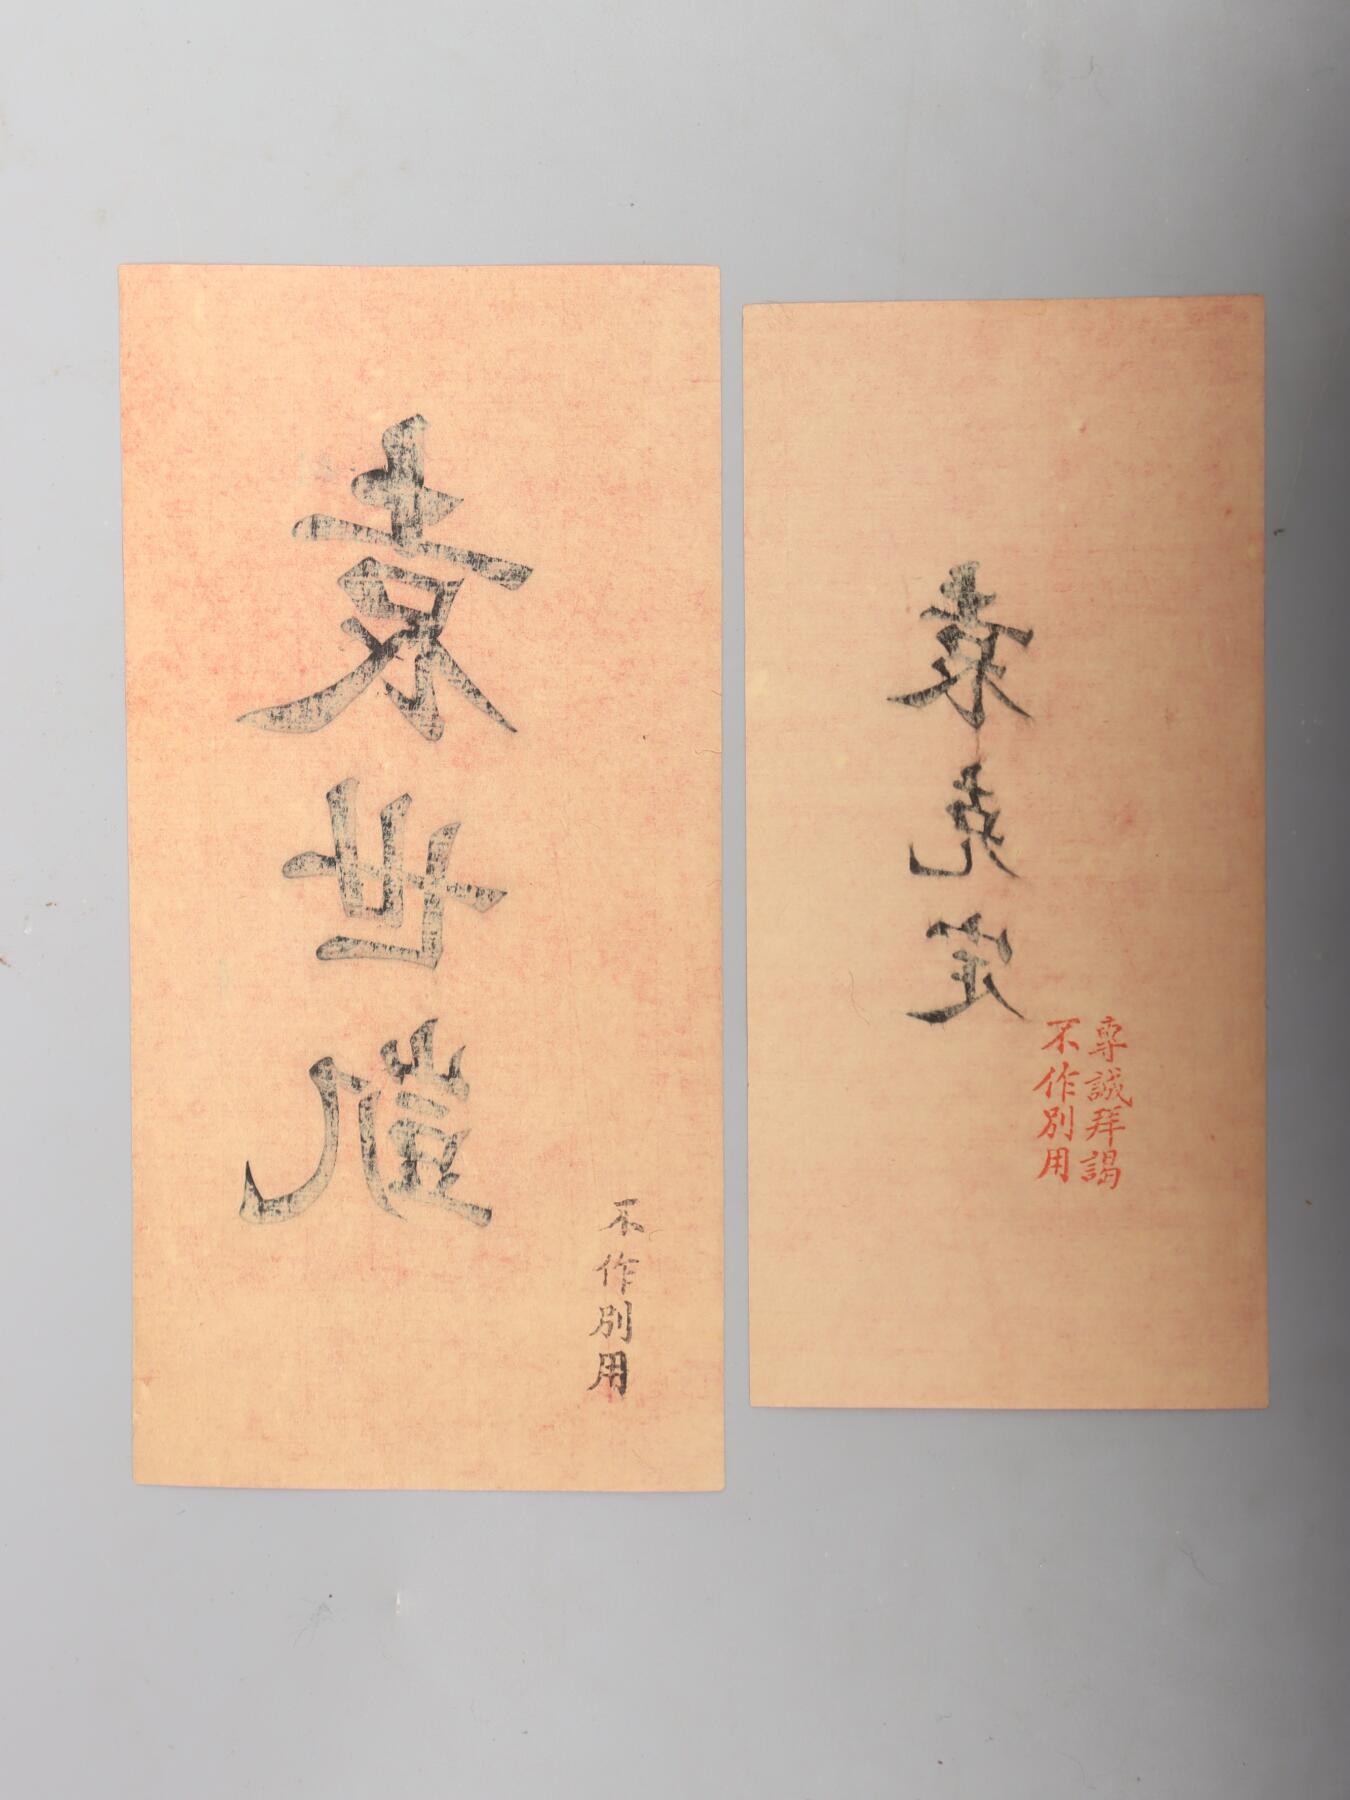 袁世凱
不作別用
袁克定
專誠拜謁
不作別用